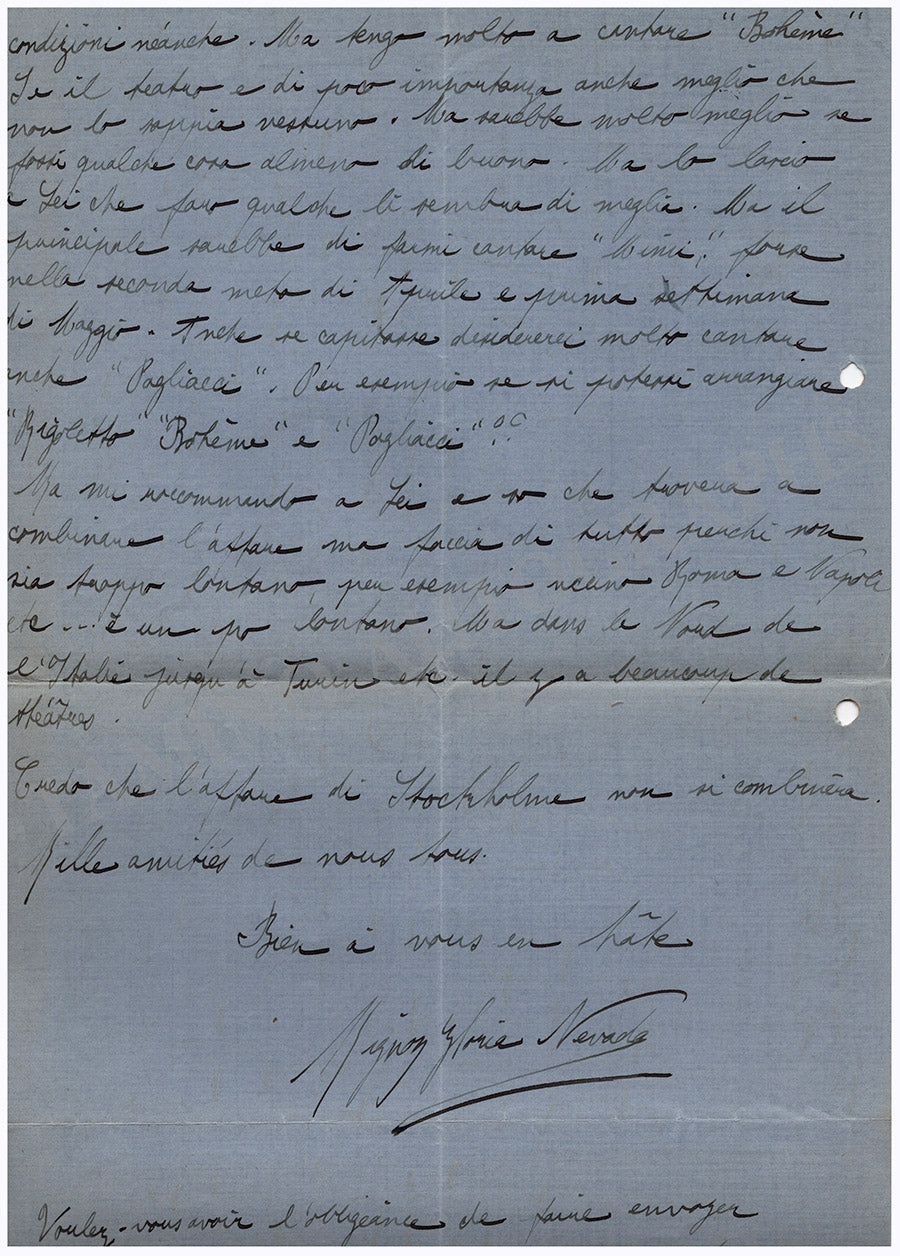 condizioni neánche. Ma tengo molto a cantare "Bohême"
Se il teatro e di poco importanza anche meglio che
non lo sappia nessuno. Ma sarebbe molto meglio se
fossi qualche cosa almeno di buono. Ma lo lascio
a Lei che faro qualche li sembra di meglia. Ma il
principale sarebbe di farmi cantare "Mimi", forse
nella seconda meta di Aprile e prima settimana
di Maggio. Anche se capitasse disidererei molto cantare
anche "Pagliacci". Per esempio se si potessi arrangiare
"Rigoletto" "Bohême" e "Pagliacci"??
Ma mi raccommando a Lei e so che trovera a
combinare l'affare ma faccia di tutto perchi non
sia troppo lontano, per esempio vicino Roma e Napoli
etc... è un po lontano. Ma dans le Nord de
l'Italie jusqu'à Turin etc. il y a beaucoup de
théâtres.
Credo che l'affare di Stockholme non si combinera.
Mille amitiés de nous tous.
Bien à vous en hâte
Mignon Gloria Nevada
Voulez-vous avoir l'obligeance de faire envoyer